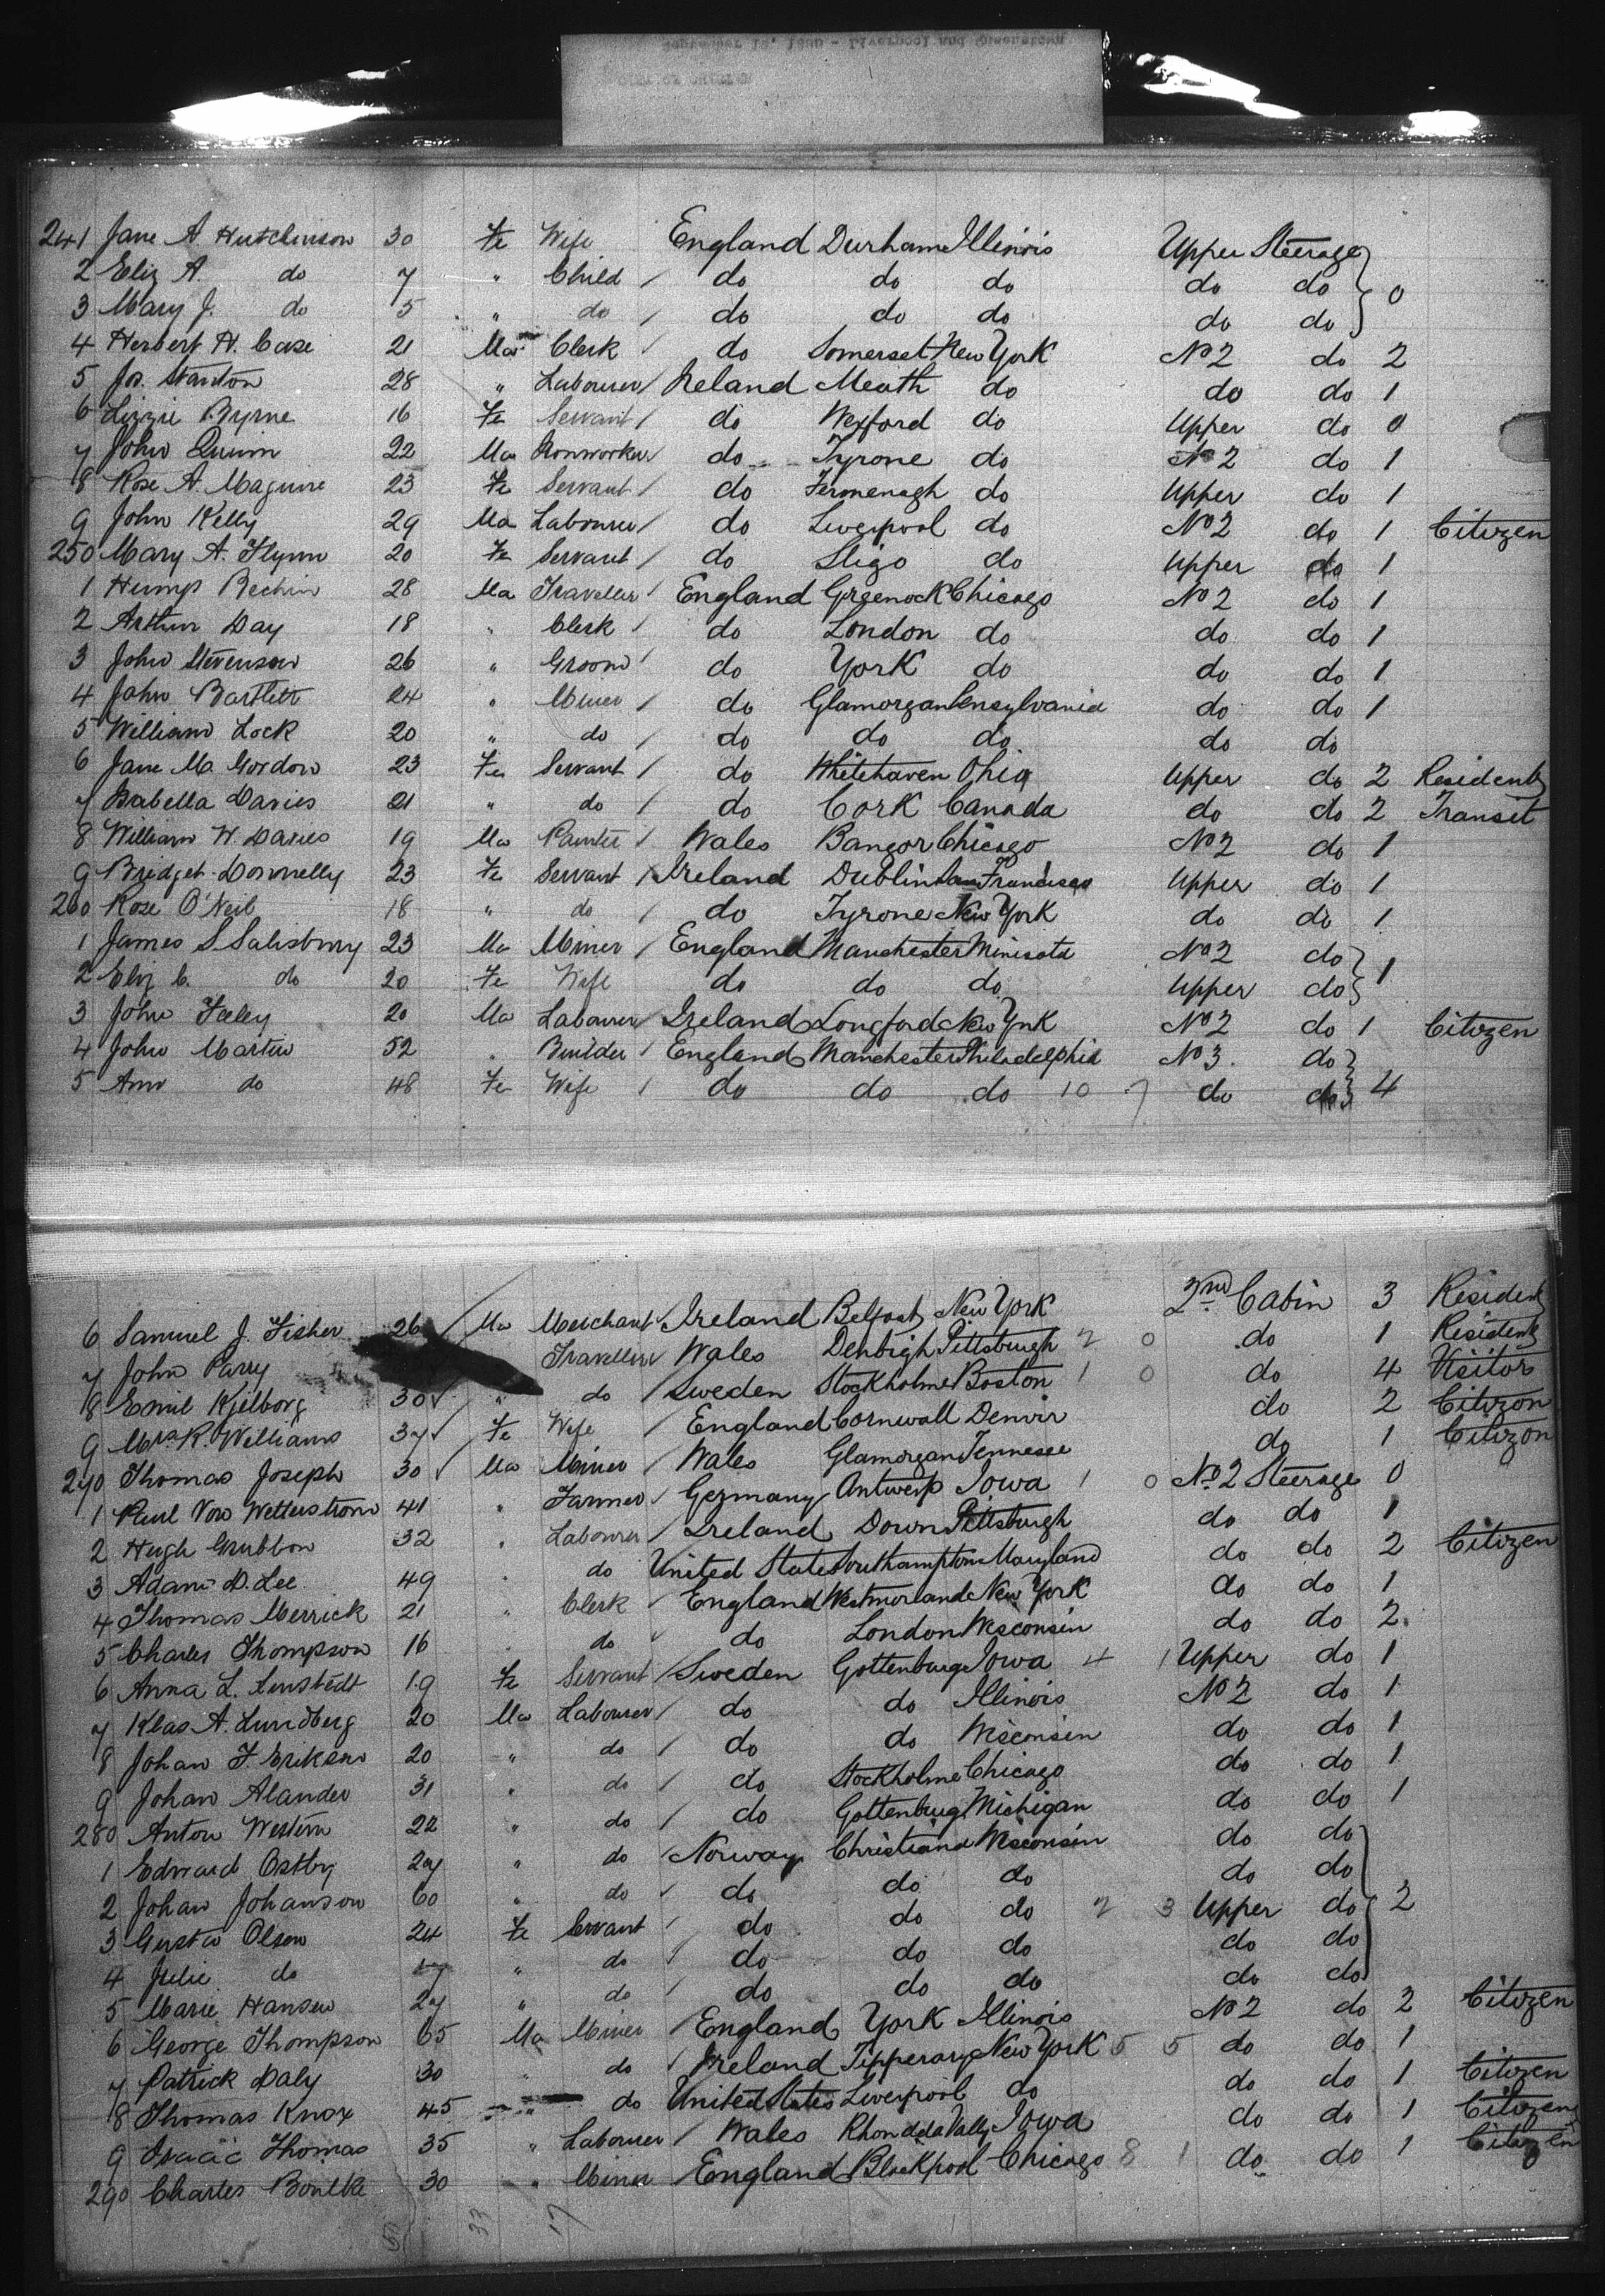 September 18, 1890 - Liverpool and Queenstown
241 Jane A. Hutchinson 30 Fe Wife England Durham Illinois Upper Steerage
2 Eliz A. do 7 " Child / do do do do do 0
3 Mary J. do 5 " do / do do do do do
4 Herbert H. Case 21 Ma Clerk / do Somerset New York No 2 do 2
5 Jos. Stanton 28 " Labourer / Ireland Meath do do do 1
6 Lizzie Byrne 16 Fe Servant / do Wexford do Upper do 0
7 John Quinn 22 Ma Ironworker / do Tyrone do No 2 do 1
8 Rose A. Maguire 23 Fe Servant / do Fermenagh do Upper do 1
9 John Kelly 29 Ma Labourer / do Liverpool do No 2 do 1 Citizen
250 Mary A. Flynn 20 Fe Servant / do Sligo do Upper do 1
1 Hump Bechin 28 Ma Traveller / England Greenock Chicago No 2 do 1
2 Arthur Day 18 " Clerk / do London do do do 1
3 John Stevenson 26 " Groom / do York do do do 1
4 John Bartlett 24 " Miner / do Glamorgan Pensylvania do do 1
5 William Lock 20 " do / do do do do do
6 Jane M. Gordon 23 Fe Servant / do Whitehaven Ohio Upper do 2 Resident
7 Isabella Davies 21 " do / do Cork Canada do do 2 Transit
8 William W. Davies 19 Ma Painter / Wales Bangor Chicago No 2 do 1
9 Bridget Donnelly 23 Fe Servant / Ireland Dublin San Francisco Upper do 1
260 Rose O'Neil 18 " do / do Tyrone New York do do 1
1 James S Salisbury 23 Ma Miner / England Manchester Minisota No 2 do
2 Eliz C. do 20 Fe Wife do do do Upper do 1
3 John Feeley 20 Ma Labourer / Ireland Longford New York No 2 do 1 Citizen
4 John Martin 52 " Builder / England Manchester Philadelphia No 3 do
5 Ann do 48 Fe Wife / do do do 10 7 do do 4
6 Samuel J. Fisher 26 Ma Merchant Ireland Belfast New York 2nd Cabin 3 Resident
7 John Parry Traveller Wales Denbigh Pittsburgh 2 0 do 1 Resident
8 Emil Kjelborg 30 " do / Sweden Stockholme Boston 1 0 do 4 Visitor
9 Mrs R. Williams 37 Fe Wife / England Cornwall Denvir do 2 Citizon
270 Thomas Joseph 30 Ma Miner / Wales Glamorgan Tennesee do 1 Citizon
1 Paul Von Wetterstrom 41 " Farmer / Germany Antwerp Iowa 1 0 No 2 Steerage 0
2 Hugh Grubbon 32 " Labourer / Ireland Down Pittsburgh do do 1
3 Adam D. Lee 49 " do United States Southampton Maryland do do 2 Citizen
4 Thomas Merrick 21 " Clerk / England Westmorland New York do do 1
5 Charles Thompson 16 " do do London Wisconsin do do 2
6 Anna L. Linstedt 19 Fe Servant / Sweden Gottenburg Iowa 4 1 Upper do 1
7 Klas A. Lundberg 20 Ma Labourer / do do Illinois No 2 do 1
8 Johan F. Erikson 20 " do / do do Wisconsin do do 1
9 Johan Alander 31 " do / do Stockholme Chicago do do 1
280 Anton Western 22 " do / do Gottenburg Michigan do do 1
1 Edward Ostby 27 " do Norway Christiana Wisconsin do do
2 Johan Johanson 60 " do / do do do do do
3 Gusta Olsen 24 Fe Servant / do do do 2 3 Upper do 2
4 Julie do " do / do do do do do
5 Marie Hansen 27 " do / do do do do do
6 George Thompson 65 Ma Miner / England York Illinois No 2 do 2 Citizen
7 Patrick Daly 30 " do / Ireland Tipperary New York 5 5 do do 1
8 Thomas Knox 45 " do United States Liverpool do do do 1 Citizen
9 Isaac Thomas 35 " Labourer / Wales Rhondda Vally Iowa do do 1 Citizen
290 Charles Boulke 30 " Miner England Blackpool Chicago 8 1 do do 1 Citizen
33 17